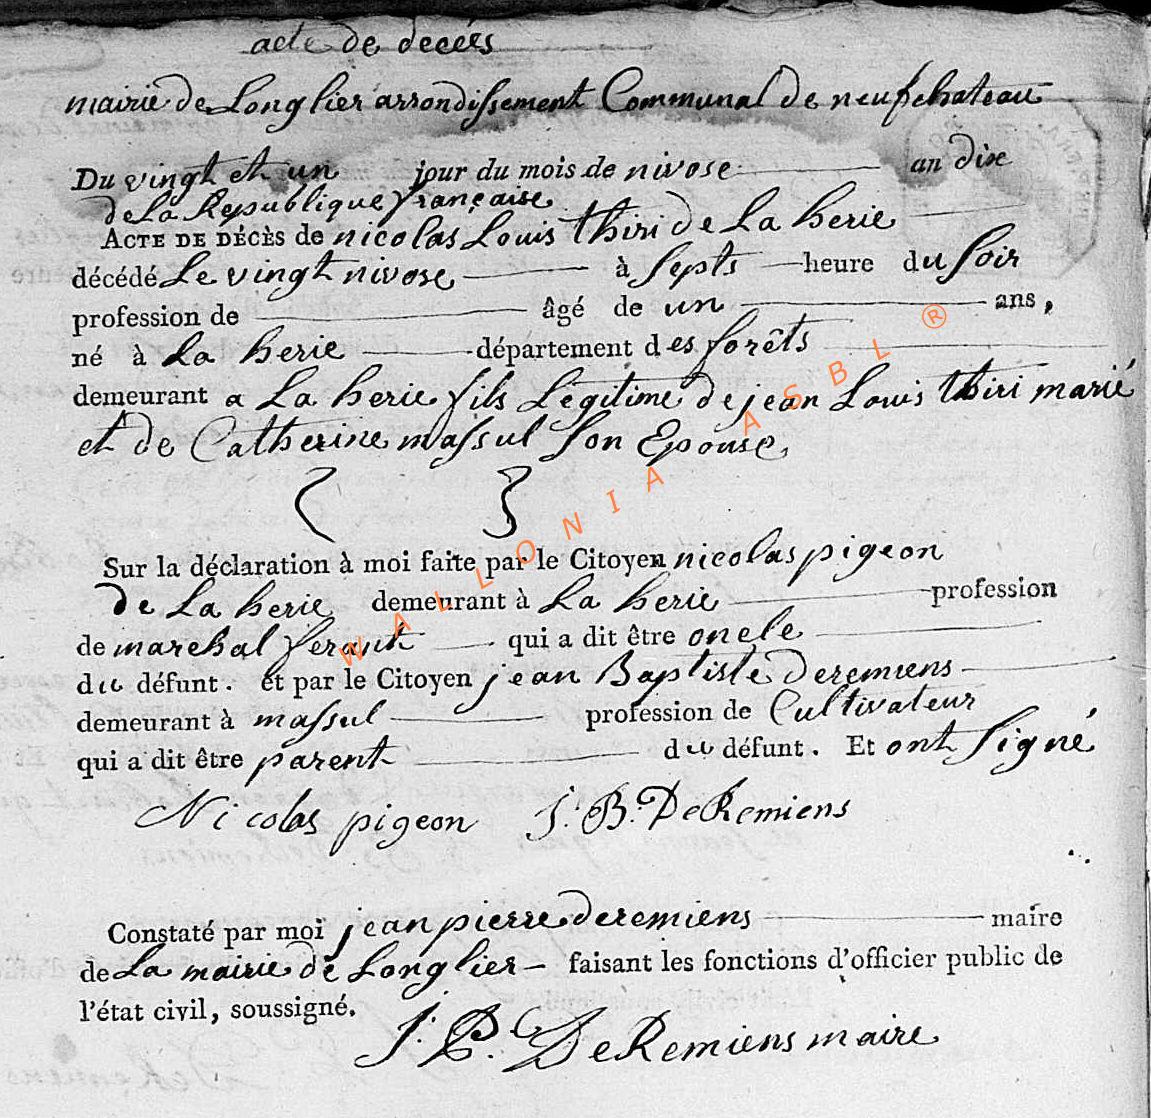 acte de decés
mairie de Longlier arrondissement Communal de neufchateau
Du vingt et un jour du mois de nivose an dix
de La Republique française
ACTE DE DÉCÈS de nicolas Louis thiri de La herie
décédé Le vingt nivose à septs heure du soir
profession de âgé de un ans,
né à La herie département des forêts
demeurant a La herie fils Légitime de jean Louis thiri marié
et de Catherine massul son Epouse,
Sur la déclaration à moi faite par le Citoyen nicolas pigeon
de La herie demeurant à La herie profession
de marehal ferant qui a dit être oncle
du défunt. et par le Citoyen jean Baptiste deremiens
demeurant à massul profession de Cultivateur
qui a dit être parent du défunt. Et ont signé
Nicolas pigeon J. B. DeRemiens
Constaté par moi jean pierre deremiens maire
de La mairie de Longlier faisant les fonctions d'officier public de
l'état civil, soussigné.
J. P. DeRemiens maire
WALLONIA ASBL ®